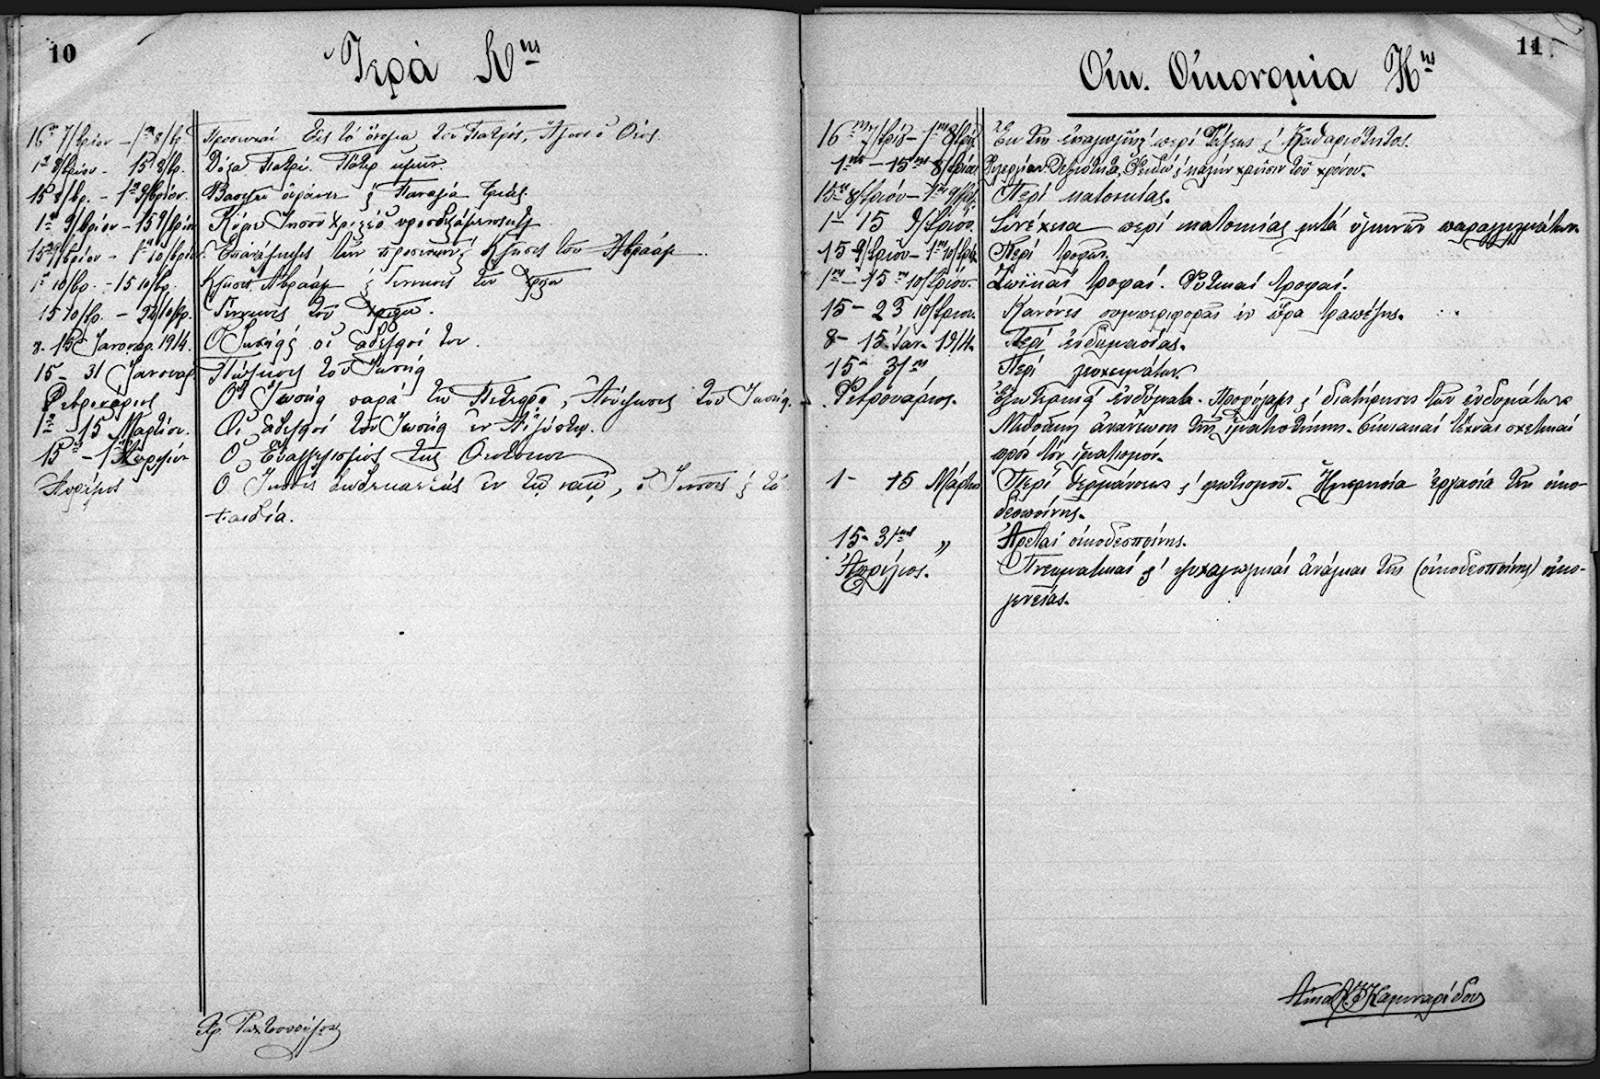 10
Ἱερὰ Α^ης
16^η 7/βρίου - 1^η 8/βρ.
Προσευχαὶ Εἰς τὸ ὄνομα τοῦ Πατρός, Ἅγιος ὁ Θεός.
1^η 8/βρίου - 15 8/βρ.
Δόξα Πατρί. Πάτερ ἡμῶν.
15 8/βρ. - 1^η 9/βρίου.
Βασιλεῦ οὐράνιε ϗ Παναγία τριάς.
1^η 9/βρίου - 15 9/βρίου
Κύριε Ἰησοῦ Χριστέ
15 9/βρίου - 1^η 10/βρίου
Ἐπανάληψις τῶν προσευχῶν ϗ Κλῆσις τοῦ Ἀβραάμ
1^η 10/βρ. - 15 10/βρ.
Κλῆσις Ἀβραάμ ϗ Γέννησις τοῦ Χριστοῦ
15 10/βρ. - 22/10/βρ.
Γέννησις τοῦ Χριστοῦ.
8 - 15 Ἰανουαρ. 1914.
Ὁ Ἰωσήφ ϗ οἱ ἀδελφοί του.
15 - 31 Ἰανουαρ.
Πώλησις τοῦ Ἰωσήφ
Φεβρουάριος
Ὁ Ἰωσήφ παρὰ τῷ Πετεφρῇ, τοῦ Ἰωσήφ.
1^η - 15 Μαρτίου.
Οἱ ἀδελφοί τοῦ Ἰωσήφ ἐν Αἰγύπτῳ.
15^η - 1^η Ἀπριλίου
Ὁ Εὐαγγελισμός τῆς Θεοτόκου
Ἀπρίλιος
Ὁ Ἰησοῦς δωδεκαετής ἐν τῷ ναῷ, ὁ Ἰησοῦς ϗ τὰ
παιδία.
11
Οἰκ. Οἰκονομία Η^ης
16^ης 7/βρίου - 1^ης 8/βρίου
περὶ τάξεως ϗ Καθαριότητος.
1^ης - 15^ης 8/βρίου
ϗ καλὴν χρῆσιν τοῦ χρόνου.
15^ης 8/βρίου - 1^ης 9/βρίου
Περὶ κατοικίας.
1 - 15 9/βρίου.
Συνέχεια περὶ κατοικίας μετὰ ὑγιεινῶν παραγγελμάτων
15 9/βρίου - 1^ης 10/βρίου
Περὶ τροφῶν.
1^ης - 15^ης 10/βρίου.
Ζωϊκαὶ τροφαί. Φυτικαὶ τροφαί.
15 - 23 10/βρίου
Κανόνες συμπεριφορᾶς ἐν ὥρᾳ τραπέζης.
8 - 15 Ἰαν. 1914.
Περὶ ἐνδυμασίας.
15 - 31^ης
Περὶ
Φεβρουάριος.
Ἐξωτερικά ἐνδύματα. Προφύλαξις ϗ διατήρησις τῶν ἐνδυμάτων
Μέθοδος ἀνανέωση τῆς ἱματιοθήκης. Οἰκιακαὶ τέχναι σχετικαὶ
πρὸς τὸν ἱματισμόν.
1 - 15 Μάρτιου
Περὶ θερμάνσεως ϗ φωτισμοῦ. Ἡμερησία ἐργασία τῆς οἰκο-
δεσποίνης.
15 - 31^ης „
Ἀρεταὶ οἰκοδεσποίνης.
Ἀπρίλιος.
Πνευματικαί ϗ ψυχαγωγικαὶ ἀνάγκαι τῆς (οἰκοδεσποίνης) οἰκο-
γενείας.